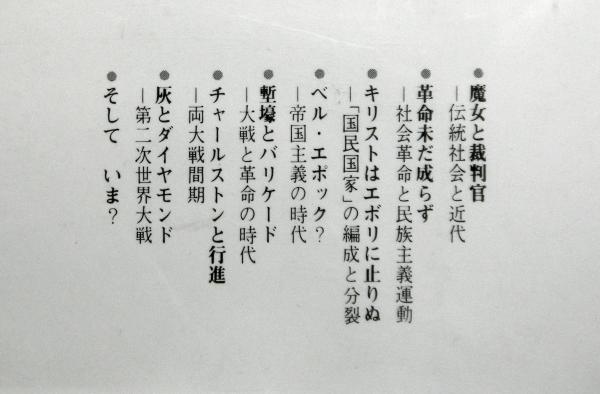 ●魔女と裁判官
―伝統社会と近代
●革命未だ成らず
―社会革命と民族主義運動
●キリストはエボリに止りぬ
―「国民国家」の編成と分裂
●ベル・エポック？
―帝国主義の時代
●塹壕とバリケード
―大戦と革命の時代
●チャールストンと行進
―両大戦間期
●灰とダイヤモンド
―第二次世界大戦
●そして　いま？